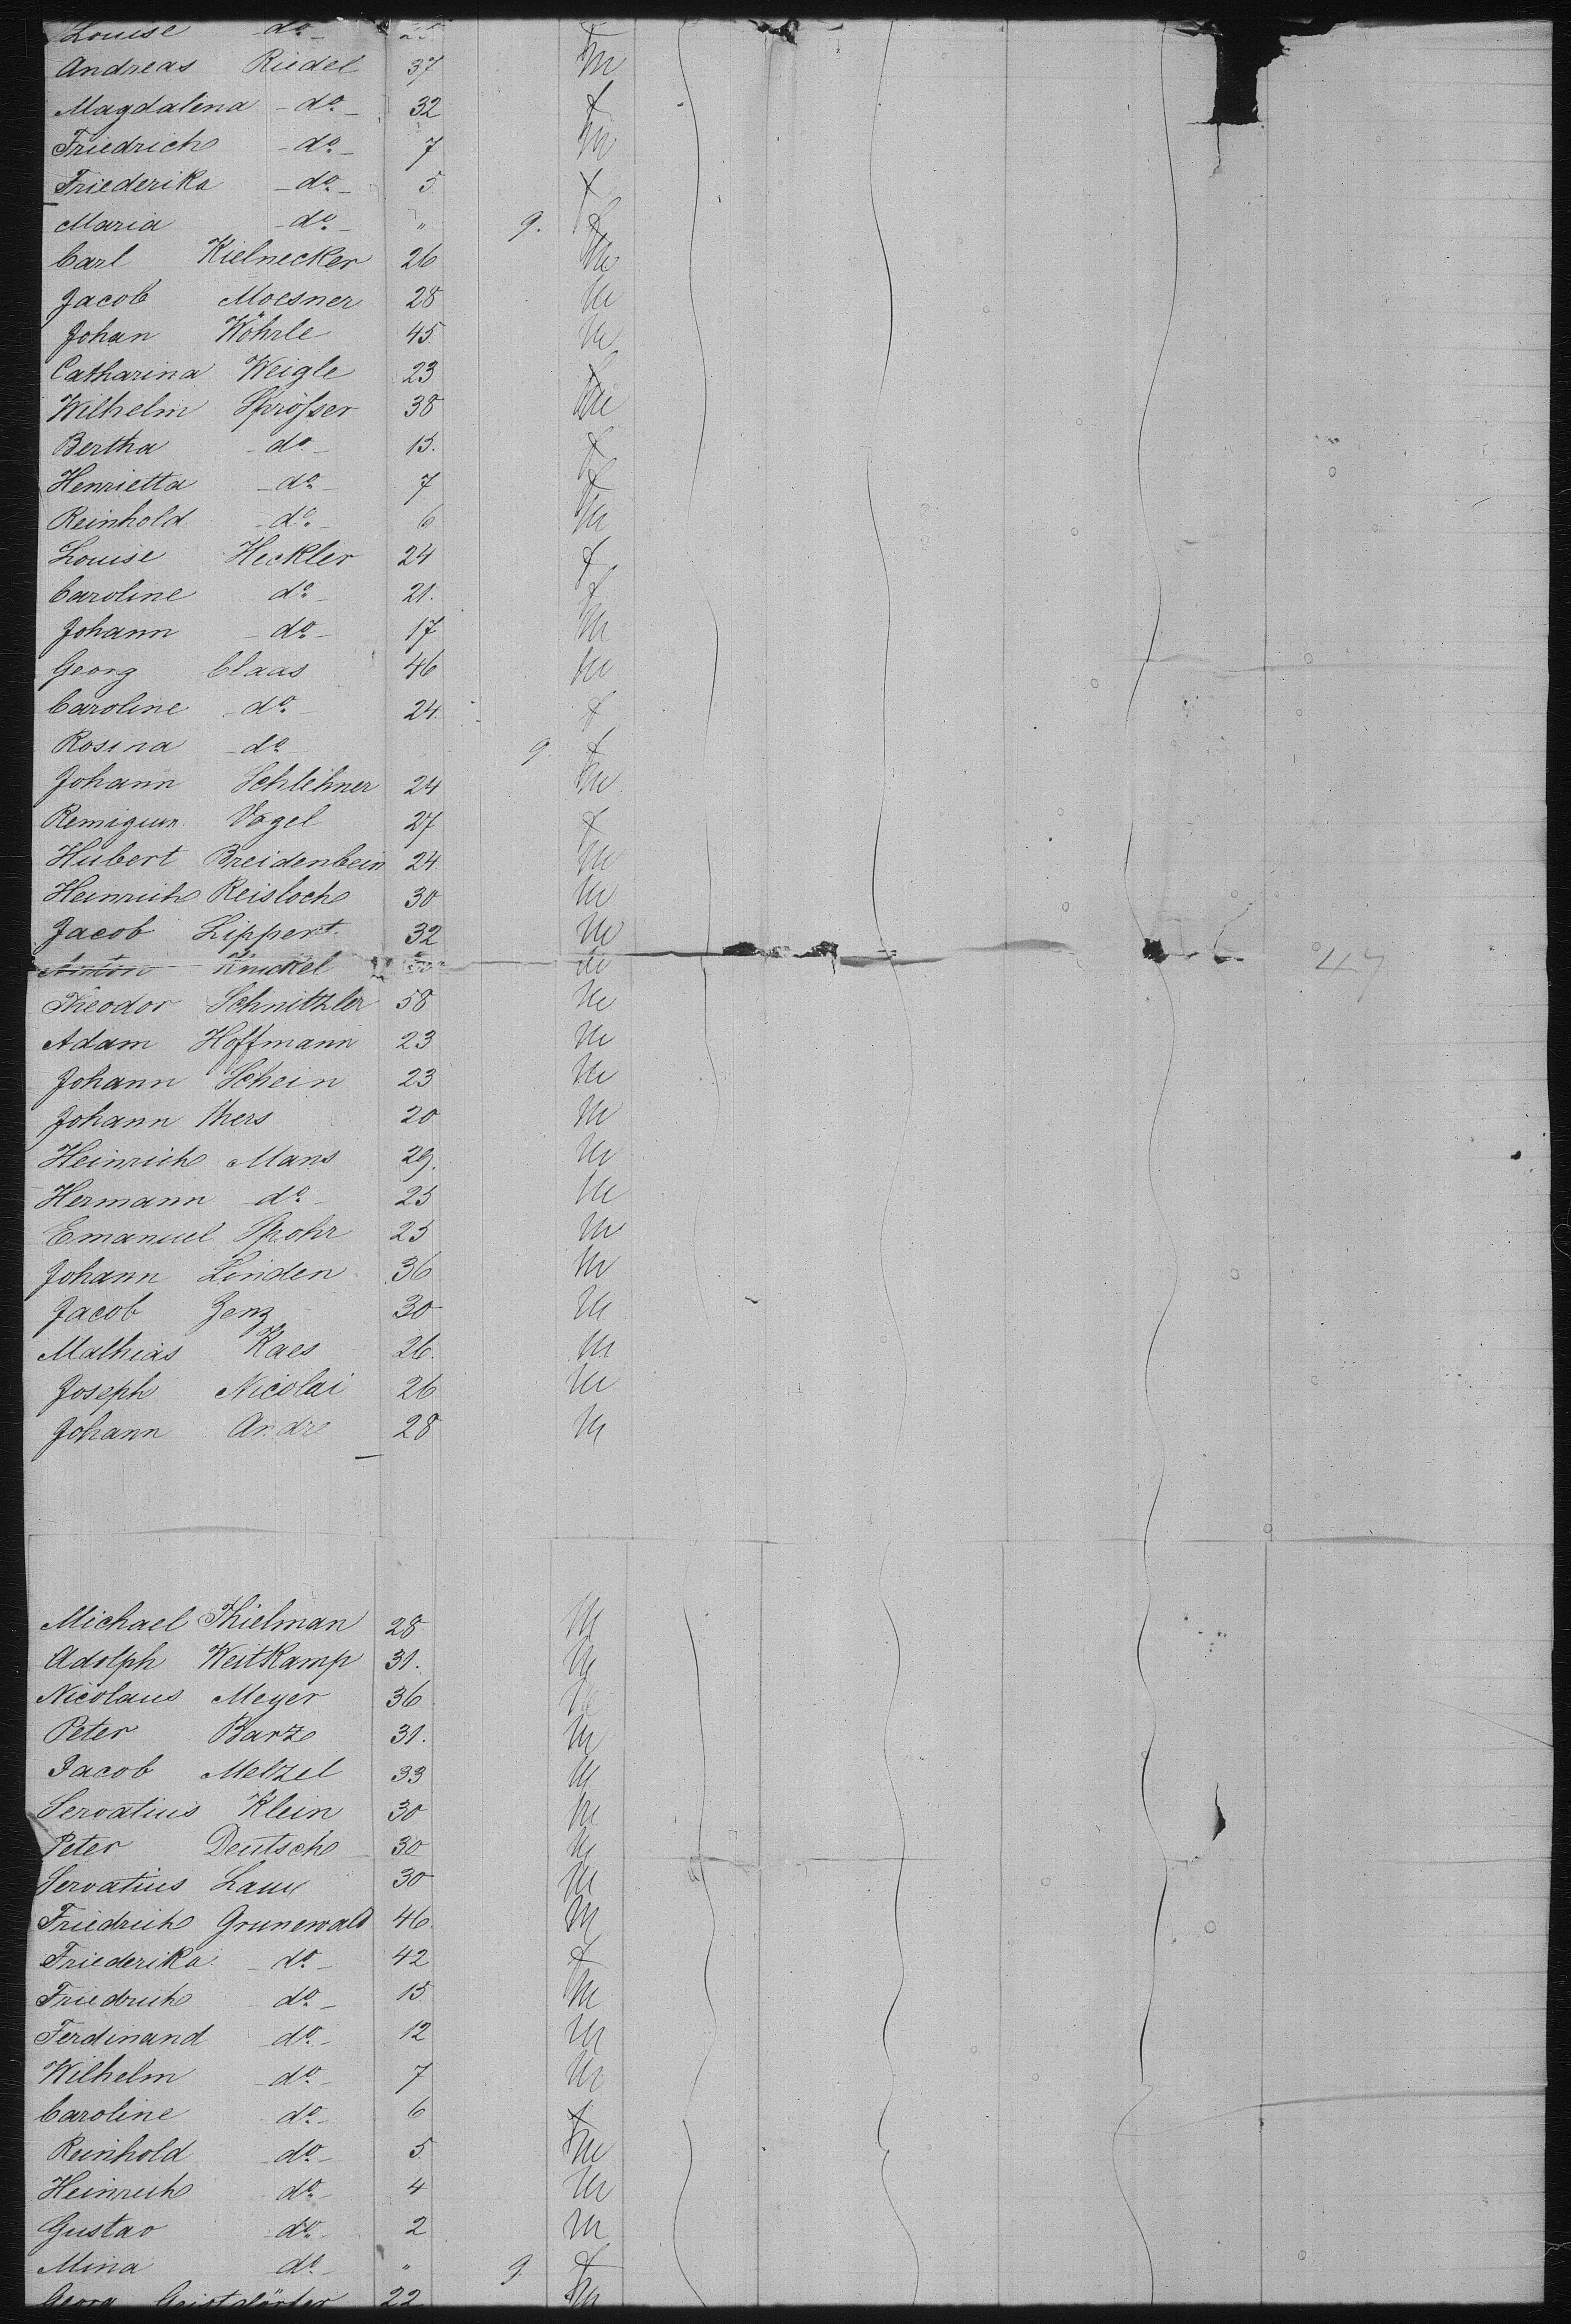 Louise do
Andreas Riedel 37 m
Magdalena do 32 f
Friedrich do 7 m
Friederika do 5 f
Maria do " 9. f
Carl Kielnecker 26 m
Jacob Moesner 28 m
Johan Wöhrle 45 m
Catharina Weigle 23 f
Wilhelm Sprösser 38 m
Bertha do 15. f
Henrietta do 7 f
Reinhold do 6 m
Louise Heckler 24 f
Caroline do 21. f
Johann do 17 m
Georg Claas 46 m
Caroline do 24. f
Rosina do 9 f
Johann Schlehner 24 m
Vogel 27 f
Hubert Breidenbein 24 m
Heinrich Reisloch 30 m
Jacob Lippert 32 m
Anton Knickel m 47
Theodor Schnitzler 58 m
Adam Hoffmann 23 m
Johann Schein 23 m
Johann 20 m
Heinrich Mans 29. m
Hermann do 25 m
Emanuel Spohr 25 m
Johann Linden 36 m
Jacob Zenz 30 m
Mathias Kaes 26. m
Joseph Nicolai 26 m
Johann Andre 28 m
Michael Thielman 28 m
Adolph Weitkamp 31. m
Nicolaus Meyer 36 m
Peter Barz 31. m
Jacob Melzel 33 m
Servatius Klein 30 m
Peter Deutsch 30 m
Servatius Laux 30 m
Friedrich Grunewald 46 m
Friederika do 42 f
Friedrich do 15 m
Ferdinand do 12 m
Wilhelm do 7 m
Caroline do 6 f
Reinhold do 5 m
Heinrich do 4 m
Gustav do 2 m
Mina do " 9 f
Georg 22 m